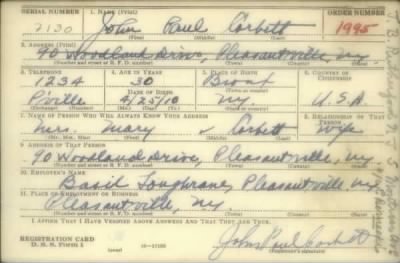 SERIAL NUMBER 1. NAME (Print) ORDER NUMBER
2130 John Paul Corbett 1995
(First) (Middle) (Last)
2. ADDRESS (Print)
90 Woodland Drive, Pleasantville, N.Y.
(Number and street or R. F. D. number) (Town) (County) (State)
3. TELEPHONE 4. AGE IN YEARS 5. PLACE OF BIRTH 6. COUNTRY OF CITIZENSHIP
1234 30 Bronx
P'ville DATE OF BIRTH
4/25/10 N.Y. U.S.A.
7. NAME OF PERSON WHO WILL ALWAYS KNOW YOUR ADDRESS 8. RELATIONSHIP OF THAT PERSON
Mrs. Mary Corbett Wife
(Mr., Mrs., Miss) (First) (Middle) (Last)
9. ADDRESS OF THAT PERSON
90 Woodland Drive, Pleasantville, N.Y.
(Number and street or R. F. D. number) (Town) (County) (State)
10. EMPLOYER'S NAME
Basil Loughrane, Pleasantville, N.Y.
11. PLACE OF EMPLOYMENT OR BUSINESS
Pleasantville, N.Y.
(Number and street or R. F. D. number) (Town) (County) (State)
I AFFIRM THAT I HAVE VERIFIED ABOVE ANSWERS AND THAT THEY ARE TRUE.
REGISTRATION CARD
D. S. S. Form 1 (over) 16-17105 John Paul Corbett